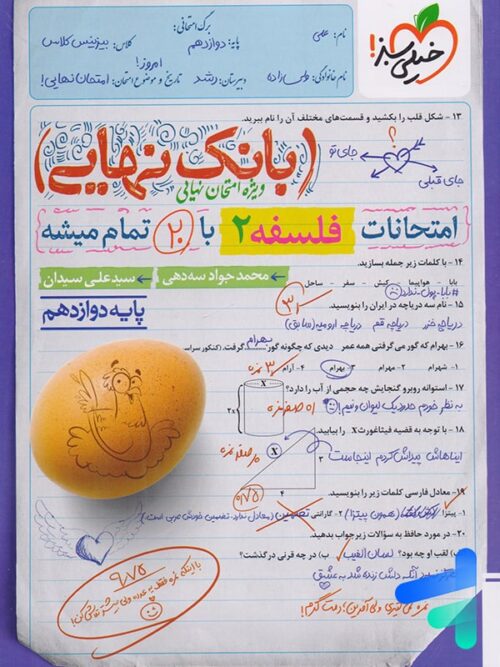 برگ امتحانی:
نام: علی
پایه: دوازدهم
کلاس: بیزینس کلاس
امروز!
نام خانوادگی: ولی زاده
دبیرستان: رشد
تاریخ و موضوع امتحان: امتحان نهایی!
خیلی سبز!
۱۳ - شکل قلب را بکشید و قسمت‌های مختلف آن را نام ببرید.
؟
جای تو
جای قبلی
(بانک نهایی)
ویژه امتحان نهایی
امتحانات فلسفه ۲ با ۲۰ تمام میشه
۱۴ - با کلمات زیر جمله بسازید.
بابا - هواپیما - کیش - سفر - ساحل
#بابا-پول-ندارد
محمدجواد سه‌دهی
سیدعلی سیدان
پایه دوازدهم
۱۵ - نام سه دریاچه در ایران را بنویسید.
دریاچه خزر دریاچه قم دریاچه ارومیه (سابق)
۱۶ - بهرام که گور می‌گرفتی همه عمر دیدی که چگونه گور بهرام گرفت. (کنکور سراسری
۱- شهرام ۲- بهرام ۳- بهرام ۴- آرام
۱۷ - استوانه روبرو گنجایش چه حجمی از آب را دارد؟
به نظر خودم حدود یک لیوان ونیم!
X
2x
۱۸ - با توجه به قضیه فیثاغورث X را بیابید.
ایناهاش پیداش کردم اینجاست
X
۳
۴
۰/۷۵
۱۹ - معادل فارسی کلمات زیر را بنویسید.
۱- پیتزا (همون پیتزا) ۲- گارانتی تضمین (معادل ندارد، تضمین خودش عربی است.)
۲۰ - در مورد حافظ به سؤالات زیر جواب بدهید.
) لقب او چه بود؟ لسان الغیب ب) در چه قرنی درگذشت؟
هرگز نمیرد آنکه دلش زنده شد به عشق
۹/۷۵